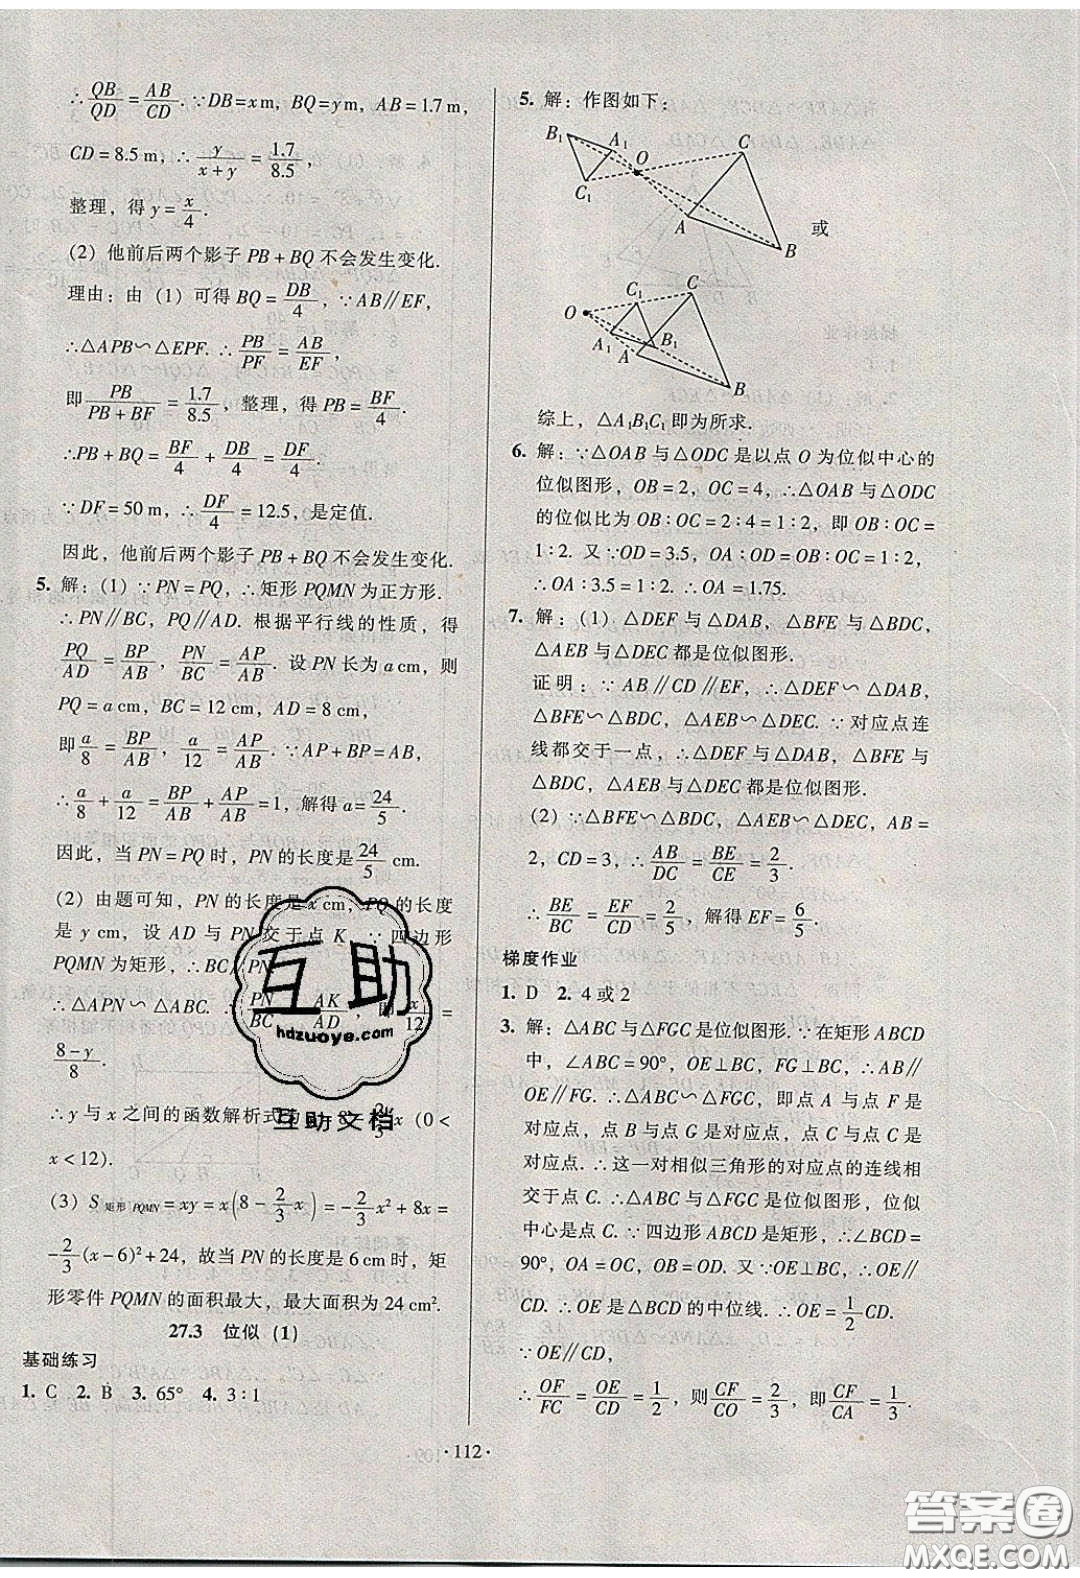 ∴QB/QD=AB/CD. ∵DB=x m, BQ=y m, AB=1.7 m,
CD=8.5 m, ∴y/(x+y)=1.7/8.5,
整理，得 y=x/4.
(2) 他前后两个影子 PB+BQ 不会发生变化.
理由：由 (1) 可得 BQ=DB/4, ∵AB∥EF,
∴△APB∽△EPF. ∴PB/PF=AB/EF,
即PB/(PB+BF)=1.7/8.5, 整理，得 PB=BF/4.
∴PB+BQ=BF/4+DB/4=DF/4.
∵DF=50 m, ∴DF/4=12.5, 是定值.
因此，他前后两个影子 PB+BQ 不会发生变化.
5. 解：(1) ∵PN=PQ, ∴矩形 PQMN 为正方形.
∴PN∥BC, PQ∥AD. 根据平行线的性质，得
PQ/AD=BP/AB, PN/BC=AP/AB. 设 PN 长为 a cm, 则
PQ=a cm, BC=12 cm, AD=8 cm,
即a/8=BP/AB, a/12=AP/AB. ∵AP+BP=AB,
∴a/8+a/12=BP/AB+AP/AB=1, 解得 a=24/5.
因此，当 PN=PQ 时，PN 的长度是24/5 cm.
(2) 由题可知，PN 的长度是 x cm, PQ 的长度
是 y cm, 设 AD 与 PN 交于点 K. ∵四边形
PQMN 为矩形，∴BC∥PN.
∴△APN∽△ABC. ∴PN/BC=AK/AD, 即x/12=
(8-y)/8.
∴y 与 x 之间的函数解析式为 y=8-2/3x (0<
x<12).
(3) S矩形 PQMN=xy=x(8-2/3x)=-2/3x²+8x=
-2/3(x-6)²+24, 故当 PN 的长度是 6 cm 时，矩
形零件 PQMN 的面积最大，最大面积为 24 cm².
27.3 位似 (1)
基础练习
1. C 2. B 3. 65° 4. 3∶1
5. 解：作图如下：
B1 A1 O C C1 A B 或
O C1 C A1 A B1 B
综上，△A1B1C1 即为所求.
6. 解：∵△OAB 与△ODC 是以点 O 为位似中心的
位似图形，OB=2, OC=4, ∴△OAB 与△ODC
的位似比为 OB∶OC=2∶4=1∶2, 即 OB∶OC=
1∶2. 又∵OD=3.5, OA∶OD=OB∶OC=1∶2,
∴OA∶3.5=1∶2. ∴OA=1.75.
7. 解：(1) △DEF 与△DAB, △BFE 与△BDC,
△AEB 与△DEC 都是位似图形.
证明：∵AB∥CD∥EF, ∴△DEF∽△DAB,
△BFE∽△BDC, △AEB∽△DEC. ∵对应点连
线都交于一点，∴△DEF 与△DAB, △BFE 与
△BDC, △AEB 与△DEC 都是位似图形.
(2) ∵△BFE∽△BDC, △AEB∽△DEC, AB=
2, CD=3, ∴AB/DC=BE/CE=2/3.
∴BE/BC=EF/CD=2/5, 解得 EF=6/5.
梯度作业
1. D 2. 4 或 2
3. 解：△ABC 与△FGC 是位似图形. ∵在矩形 ABCD
中，∠ABC=90°, OE⊥BC, FG⊥BC, ∴AB∥
OE∥FG. ∴△ABC∽△FGC, 即点 A 与点 F 是
对应点，点 B 与点 G 是对应点，点 C 与点 C 是
对应点. ∴这一对相似三角形的对应点的连线相
交于点 C. ∴△ABC 与△FGC 是位似图形，位似
中心是点 C. ∵四边形 ABCD 是矩形，∴∠BCD=
90°, OA=OC, OB=OD. 又∵OE⊥BC, ∴OE∥
CD. ∴OE 是△BCD 的中位线. ∴OE=1/2CD.
∵OE∥CD,
∴OF/FC=OE/CD=1/2, 则CF/CO=2/3, 即CF/CA=1/3.
·112·
互助
hdzuoye.com
互助文档
答案圈
MXQE.COM